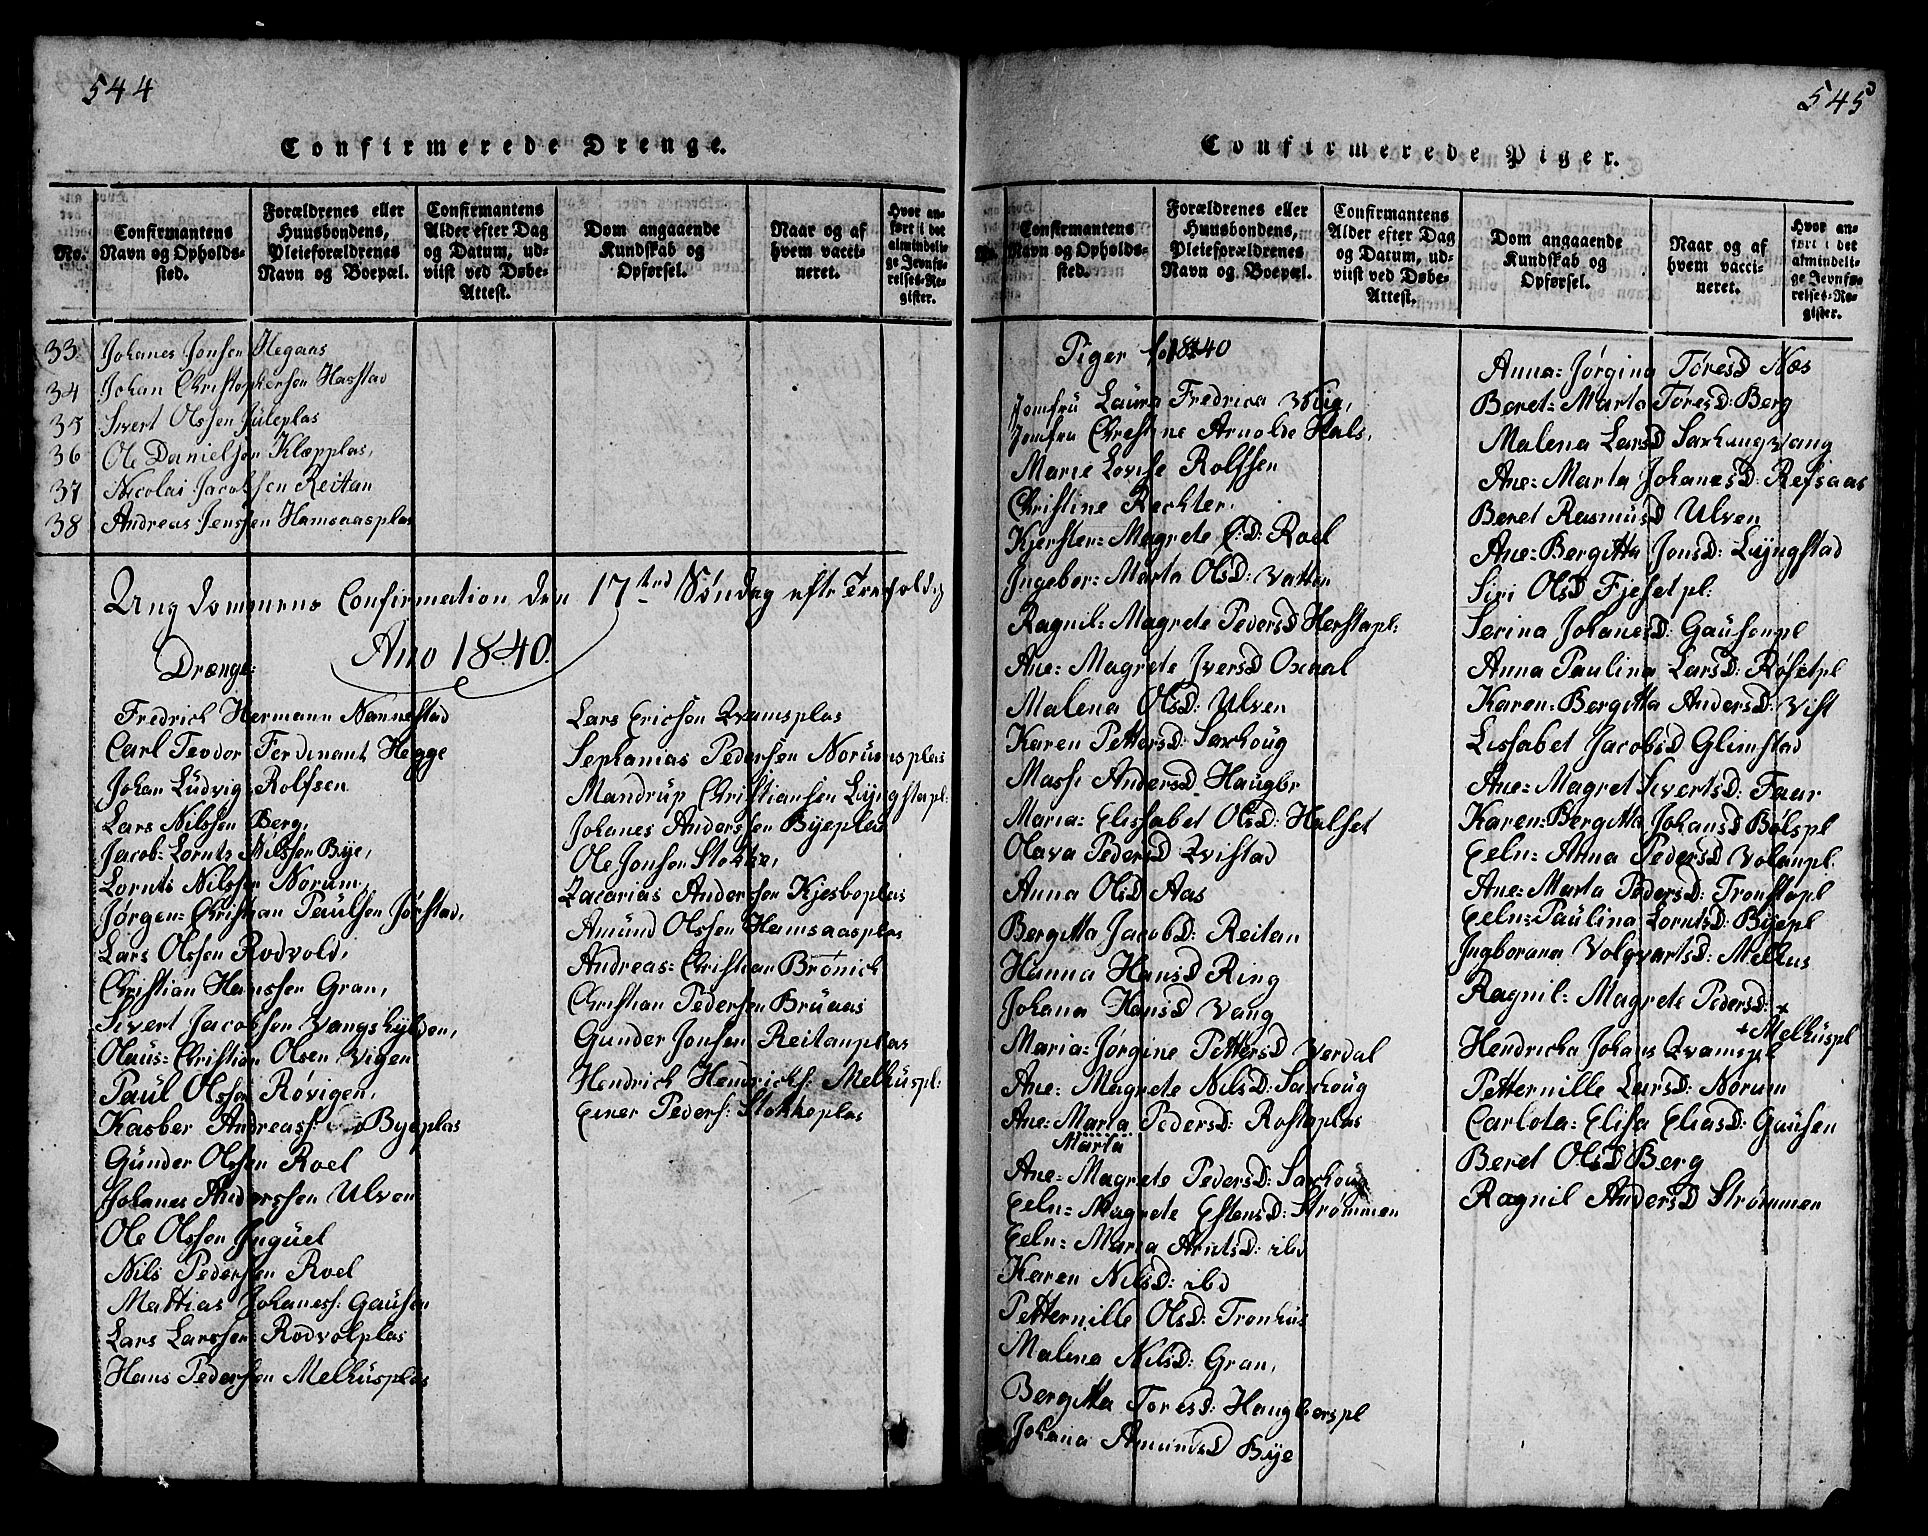 544
Confirmerede Drenge.
No.
Confirmantens Navn og Opholds-sted.
Forældrenes eller Huusbondens, Pleieforældrenes Navn og Boepæl.
Confirmantens Alder efter Dag og Datum, ud-viist ved Døbe-Attest.
Dom angaaende Kundskab og Opførsel.
Naar og af hvem vacci-neret.
Hvor an-ført i det almindeli-ge Jevnfø-relses-Re-gister.
33 Johanes Jonsen Hegaas
34 Johan Christophersen Hasstad
35 Sivert Olssen Juleplas
36 Ole Danielsen Kloppplas,
37 Nicolai Jacobsen Reitan
38 Andreas Jenssen Hamsaasplas
Ungdommens Confirmation den 17trd Søndag eftr Trefoldig
Ano 1840.
Drænge:
Fredrich Hermann Nannestad
Carl Teodor Ferdinant Hegge
Johan Ludvig Rolfsen
Lars Nilssen Berg,
Jacob: Lornts Nilssen Bye,
Lornts Nilssen Norum,
Jørgen: Christian Paulsen Jørstad,
Lars Olssen Rodvold,
Christian Hanssen Gran,
Sivert Jacobsen Vangshylden,
Olaus: Christian Olsen Vigen
Paul Olssen Røvigen,
Kasber Andreass: Byeplas
Gunder Olssen Roel
Johanes Anderssen Ulven
Ole Olsson Inguel
Nils Pedersen Roel
Mattias Johaness: Gausen
Lars Larssen Rodvolplas
Hans Pedersen Melhusplas
Lars Ericsen Qvamsplas
Sephanias Pedersen Norumsplas
Mandrup Christiansen Lyngstapl:
Johanes Anderssen Byeplas
Ole Jonsen Stokke,
Zacarias Anderssen Kjesboplas
Amund Olssen Hamsaasplas
Andreas: Christian Brønich
Christian Pedersen Bruaas
Gunder Jonsen Reitanplas
Hendrich Hendrichs: Melhuspl:
Einer Peders: Stokkeplas
545
Confirmerede Piger.
Confirmantens Navn og Opholds-sted.
Forældrenes eller Huusbondens, Pleieforældrenes Navn og Boepæl.
Confirmantens Alder efter Dag og Datum, ud-viist ved Døbe-Attest.
Dom angaaende Kundskab og Opførsel.
Naar og af hvem vacci-neret.
Hvor an-ført i det almindeli-ge Jevnfø-relses-Re-gister.
Piger for 1840
Jomfru Laura Fredrica Wiig,
Jomfru Christine Arnolde Hals,
Marie Lovise Rolfsen
Christine Rechter,
Kjersten: Magrete E:D: Roel
Ingebor: Marta OlsD: Vatten
Ragnil: Magrete PedersD Herstapl:
Ane: Magrete IversD Oxaal
Malena OlsD: Ulven
Karen PettersD: Saxhoug
Massi AndersD Haugbr
Maria: Elissabet OlsD: Halset
Olava PedersD Qvistad
Anna OlsD Aas
Bergitta JacobsD: Reitan
Hanna HansD Ring
Johana HansD Vang
Maria: Jørgine PettersD Verdal
Ane: Magrete NilsD: Saxhoug
Ane: Marta PedersD: Rostaplas
Marta
Ane: Magrete PedersD: Saxhoug
Eeln: Magrete EstensD: Strømmen
Eeln: Maria ArntsD: ibd
Karen NilsD: ibd
Petternille OlsD: Tronhus
Malena NilsD: Gran,
Bergitta ToresD: Haugberspl
Johana AmundsD Bye
Anna: Jørgina ToresD Næs
Beret: Marta ToresD: Berg
Malena LarsD Saxhaugvang
Ane: Marta JohanesD: Refsaas
Beret RasmusD Ulven
Ane: Bergitta JonsD: Lyngstad
Siri OlsD Fjesetpl:
Serina JohanesD: Gausenpl
Anna Paulina LarsD: Røsetpl
Karen: Bergitta AndersD: Vist
Lissabet JacobsD Glimstad
Ane: Magret SivertsD: Faar
Karen: Bergitta JohansD Bølspl
Eeln: Anna PedersD Volanpl.
Ane: Marta PedersD: Tronstapl
Eeln: Paulina LorntsD: Byepl
Ingborana VolqvartsD: Melhus
Ragnil: Magrete PedersD: +
+ Melhuspl
Hendricka Johans Qvamspl
Petternille LarsD: Norum
Carlota: Elisa EliasD: Gausen
Beret OlsD Berg
Ragnil AndersD Strømmen